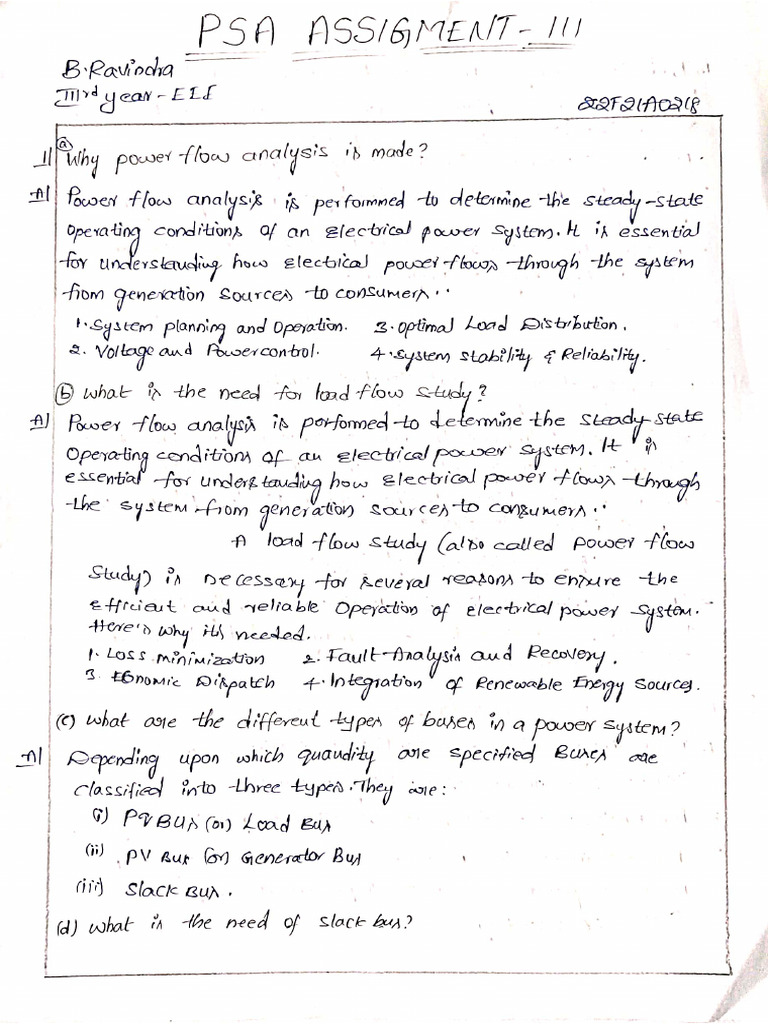 PSA ASSIGMENT - III
B.Ravindra
IIIrd year - EEE
222F21A0218
1) (a) Why power flow analysis is made?
A) Power flow analysis is performed to determine the steady-state
operating conditions of an electrical power system. It is essential
for understanding how electrical power flows through the system
from generation sources to consumers..
1. System planning and Operation. 3. Optimal Load Distribution.
2. Voltage and Power control. 4. System stability & Reliability.
(b) what is the need for load flow study?
A) Power flow analysis is performed to determine the steady state
operating conditions of an electrical power system. It is
essential for understanding how electrical power flows through
the system from generation sources to consumers..
A load flow study (also called power flow
study) is necessary for several reasons to ensure the
efficient and reliable operation of electrical power system.
Here's why its needed.
1. Loss minimization 2. Fault-Analysis and Recovery.
3. Economic Dispatch 4. Integration of Renewable Energy Sources.
(c) what are the different types of buses in a power system?
A) Depending upon which quandity are specified Buses are
classified into three types. They are:
(i) PQ Bus (or) Load Bus
(ii) PV Bus (or) Generator Bus
(iii) Slack Bus.
(d) what is the need of slack bus?